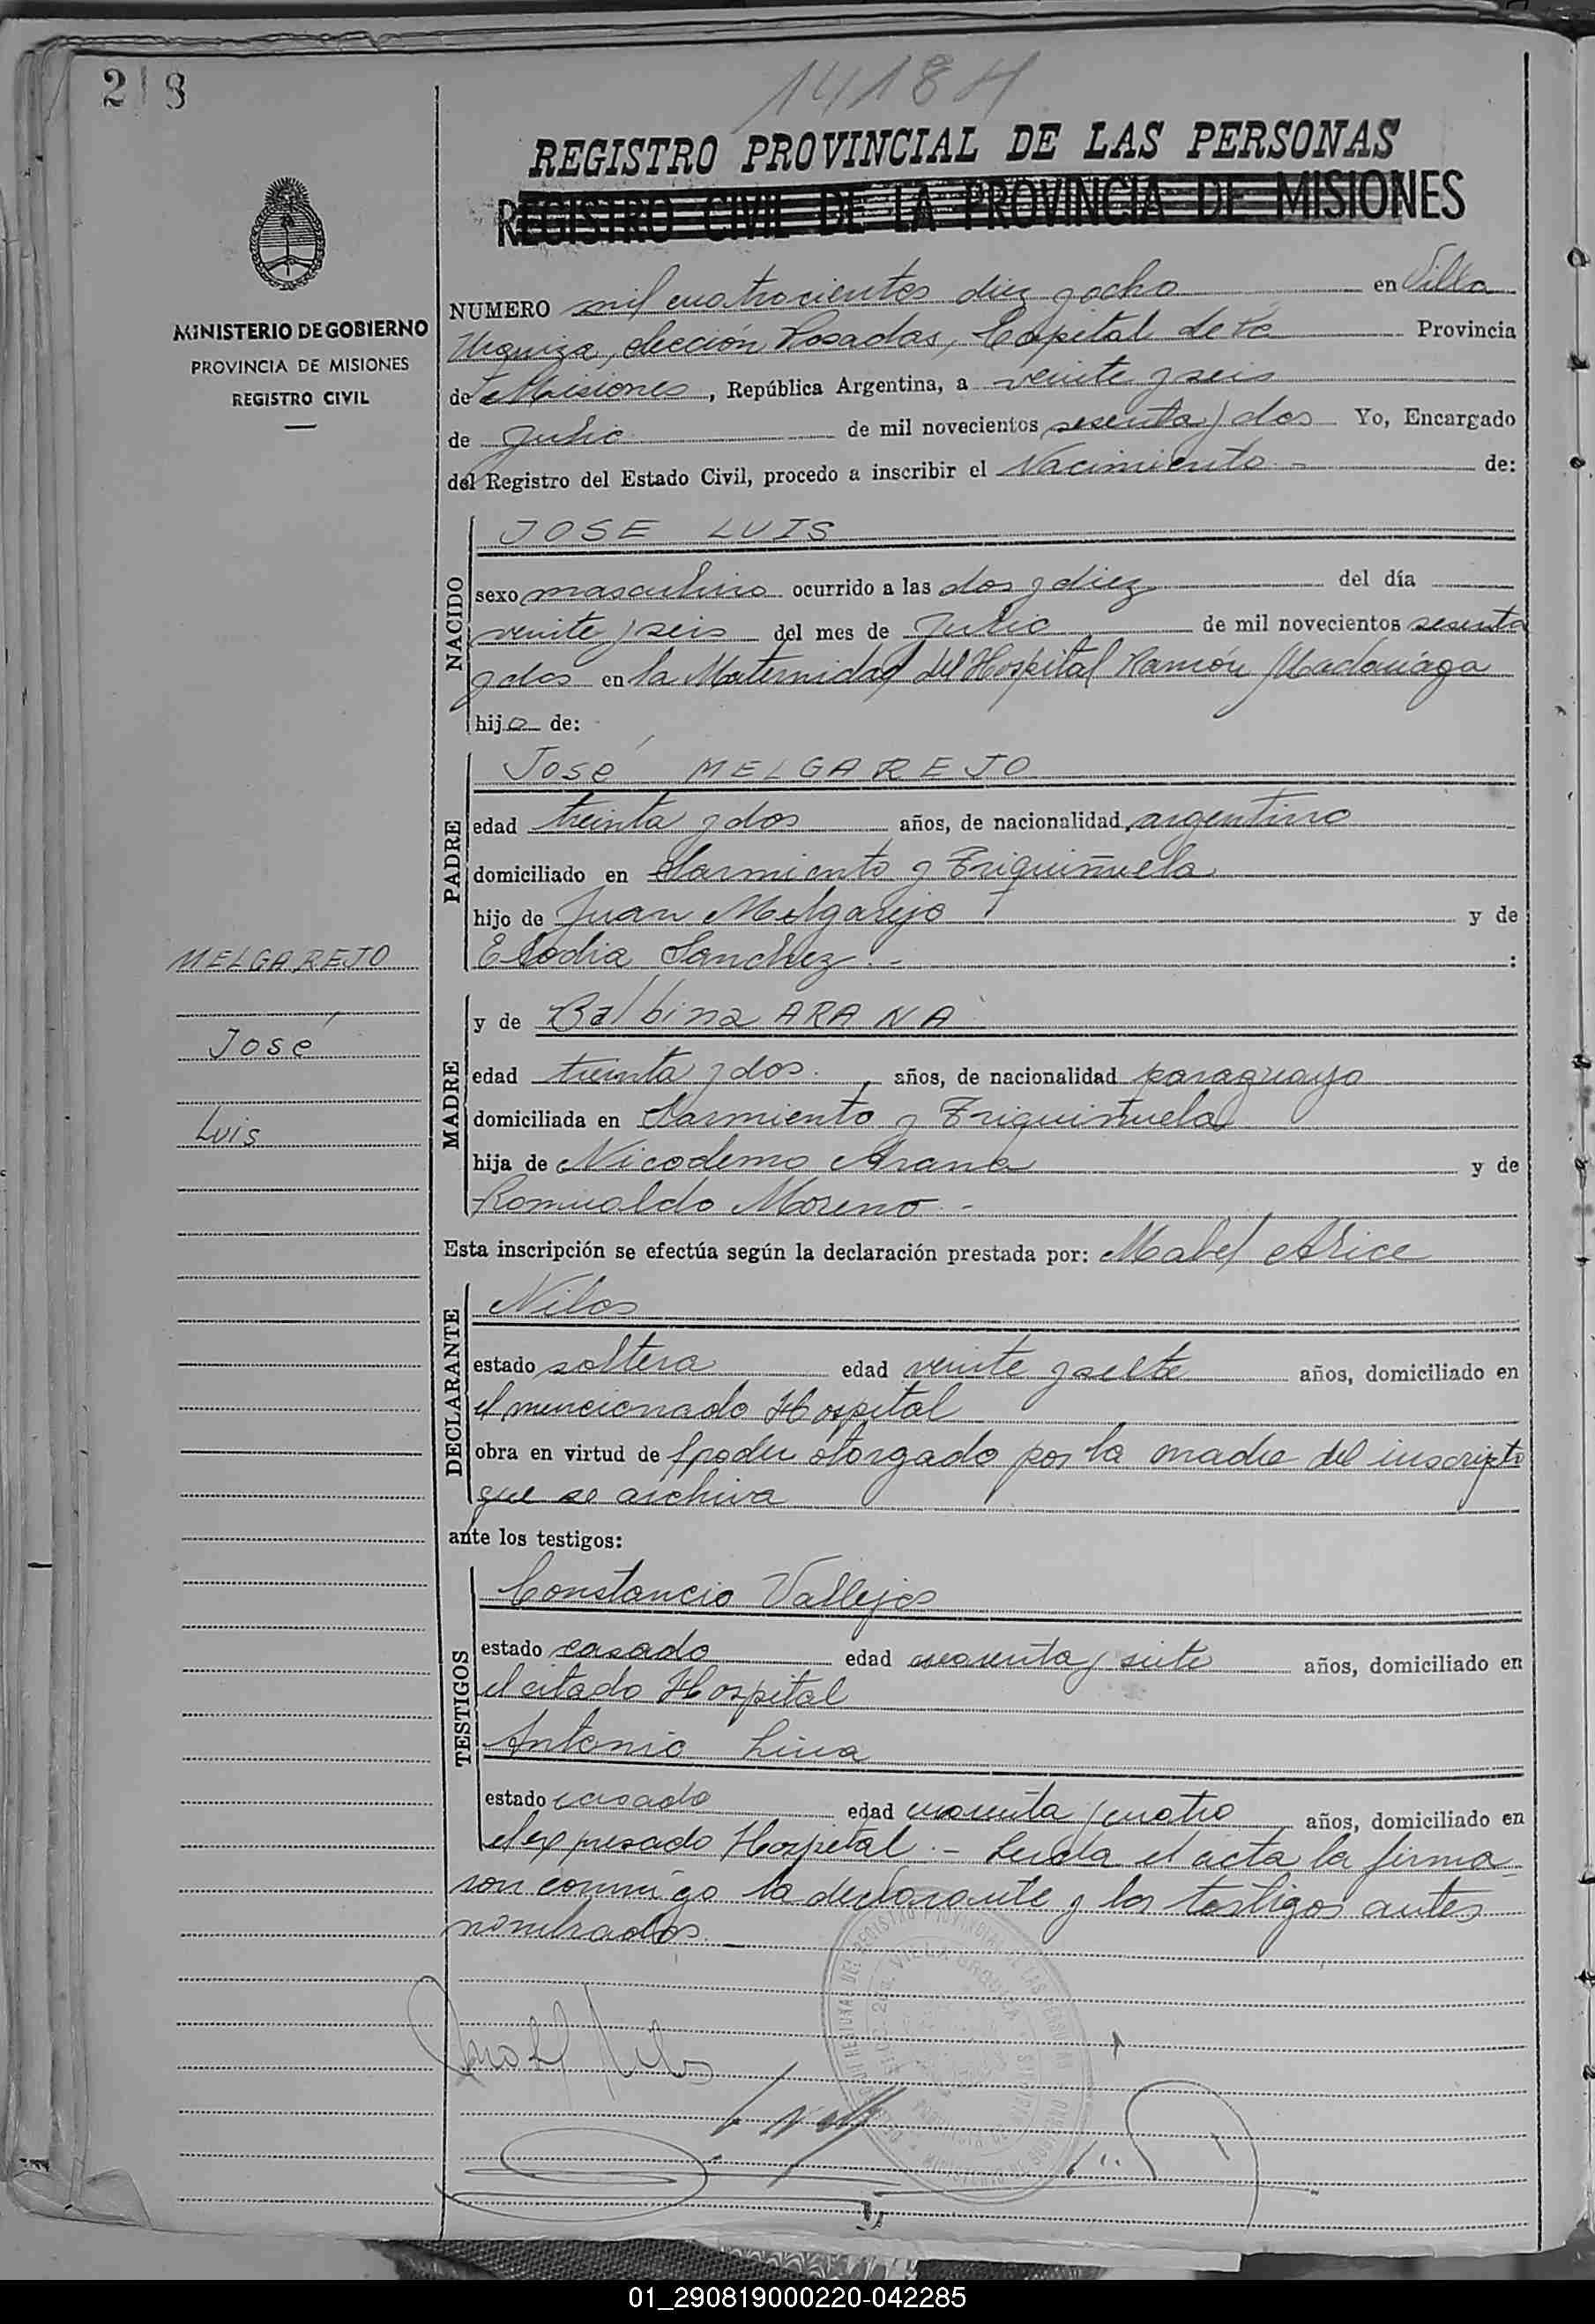 218
1418 H
REGISTRO PROVINCIAL DE LAS PERSONAS
REGISTRO CIVIL DE LA PROVINCIA DE MISIONES
MINISTERIO DE GOBIERNO
PROVINCIA DE MISIONES
REGISTRO CIVIL
NUMERO mil cuatrocientos diez y ocho en Villa
Urquiza, sección Posadas, Capital de la Provincia
de Misiones, República Argentina, a veinte y seis
de Julio de mil novecientos sesenta y dos Yo, Encargado
del Registro del Estado Civil, procedo a inscribir el Nacimiento.- de:
NACIDO
JOSE LUIS
sexo masculino ocurrido a las dos y diez del día
veinte y seis del mes de Julio de mil novecientos sesenta
y dos en la Maternidad del Hospital Ramón Madariaga
hijo de:
PADRE
José MELGAREJO
edad treinta y dos años, de nacionalidad argentino
domiciliado en Sarmiento y Triquiñuela
hijo de Juan Melgarejo y de
Elodia Sanchez.- :
MELGAREJO
José
Luis
MADRE
y de Balbina ARANA
edad treinta y dos. años, de nacionalidad paraguaya
domiciliada en Sarmiento y Triquiñuela
hija de Nicodemo Arana y de
Romualdo Moreno.-
Esta inscripción se efectúa según la declaración prestada por: Mabel Alice
DECLARANTE
Nilos
estado soltera edad veinte y siete años, domiciliado en
el mencionado Hospital
obra en virtud de poder otorgado por la madre del inscripto
que se archiva
ante los testigos:
TESTIGOS
Constancio Vallejos
estado casado edad cuarenta y siete años, domiciliado en
el citado Hospital
Antonio
estado casado edad cuarenta y cuatro años, domiciliado en
el expresado Hospital.- Leida el acta la firma
ron conmigo la declarante y los testigos antes
nombrados.
VILLA URQUIZA
01_290819000220-042285